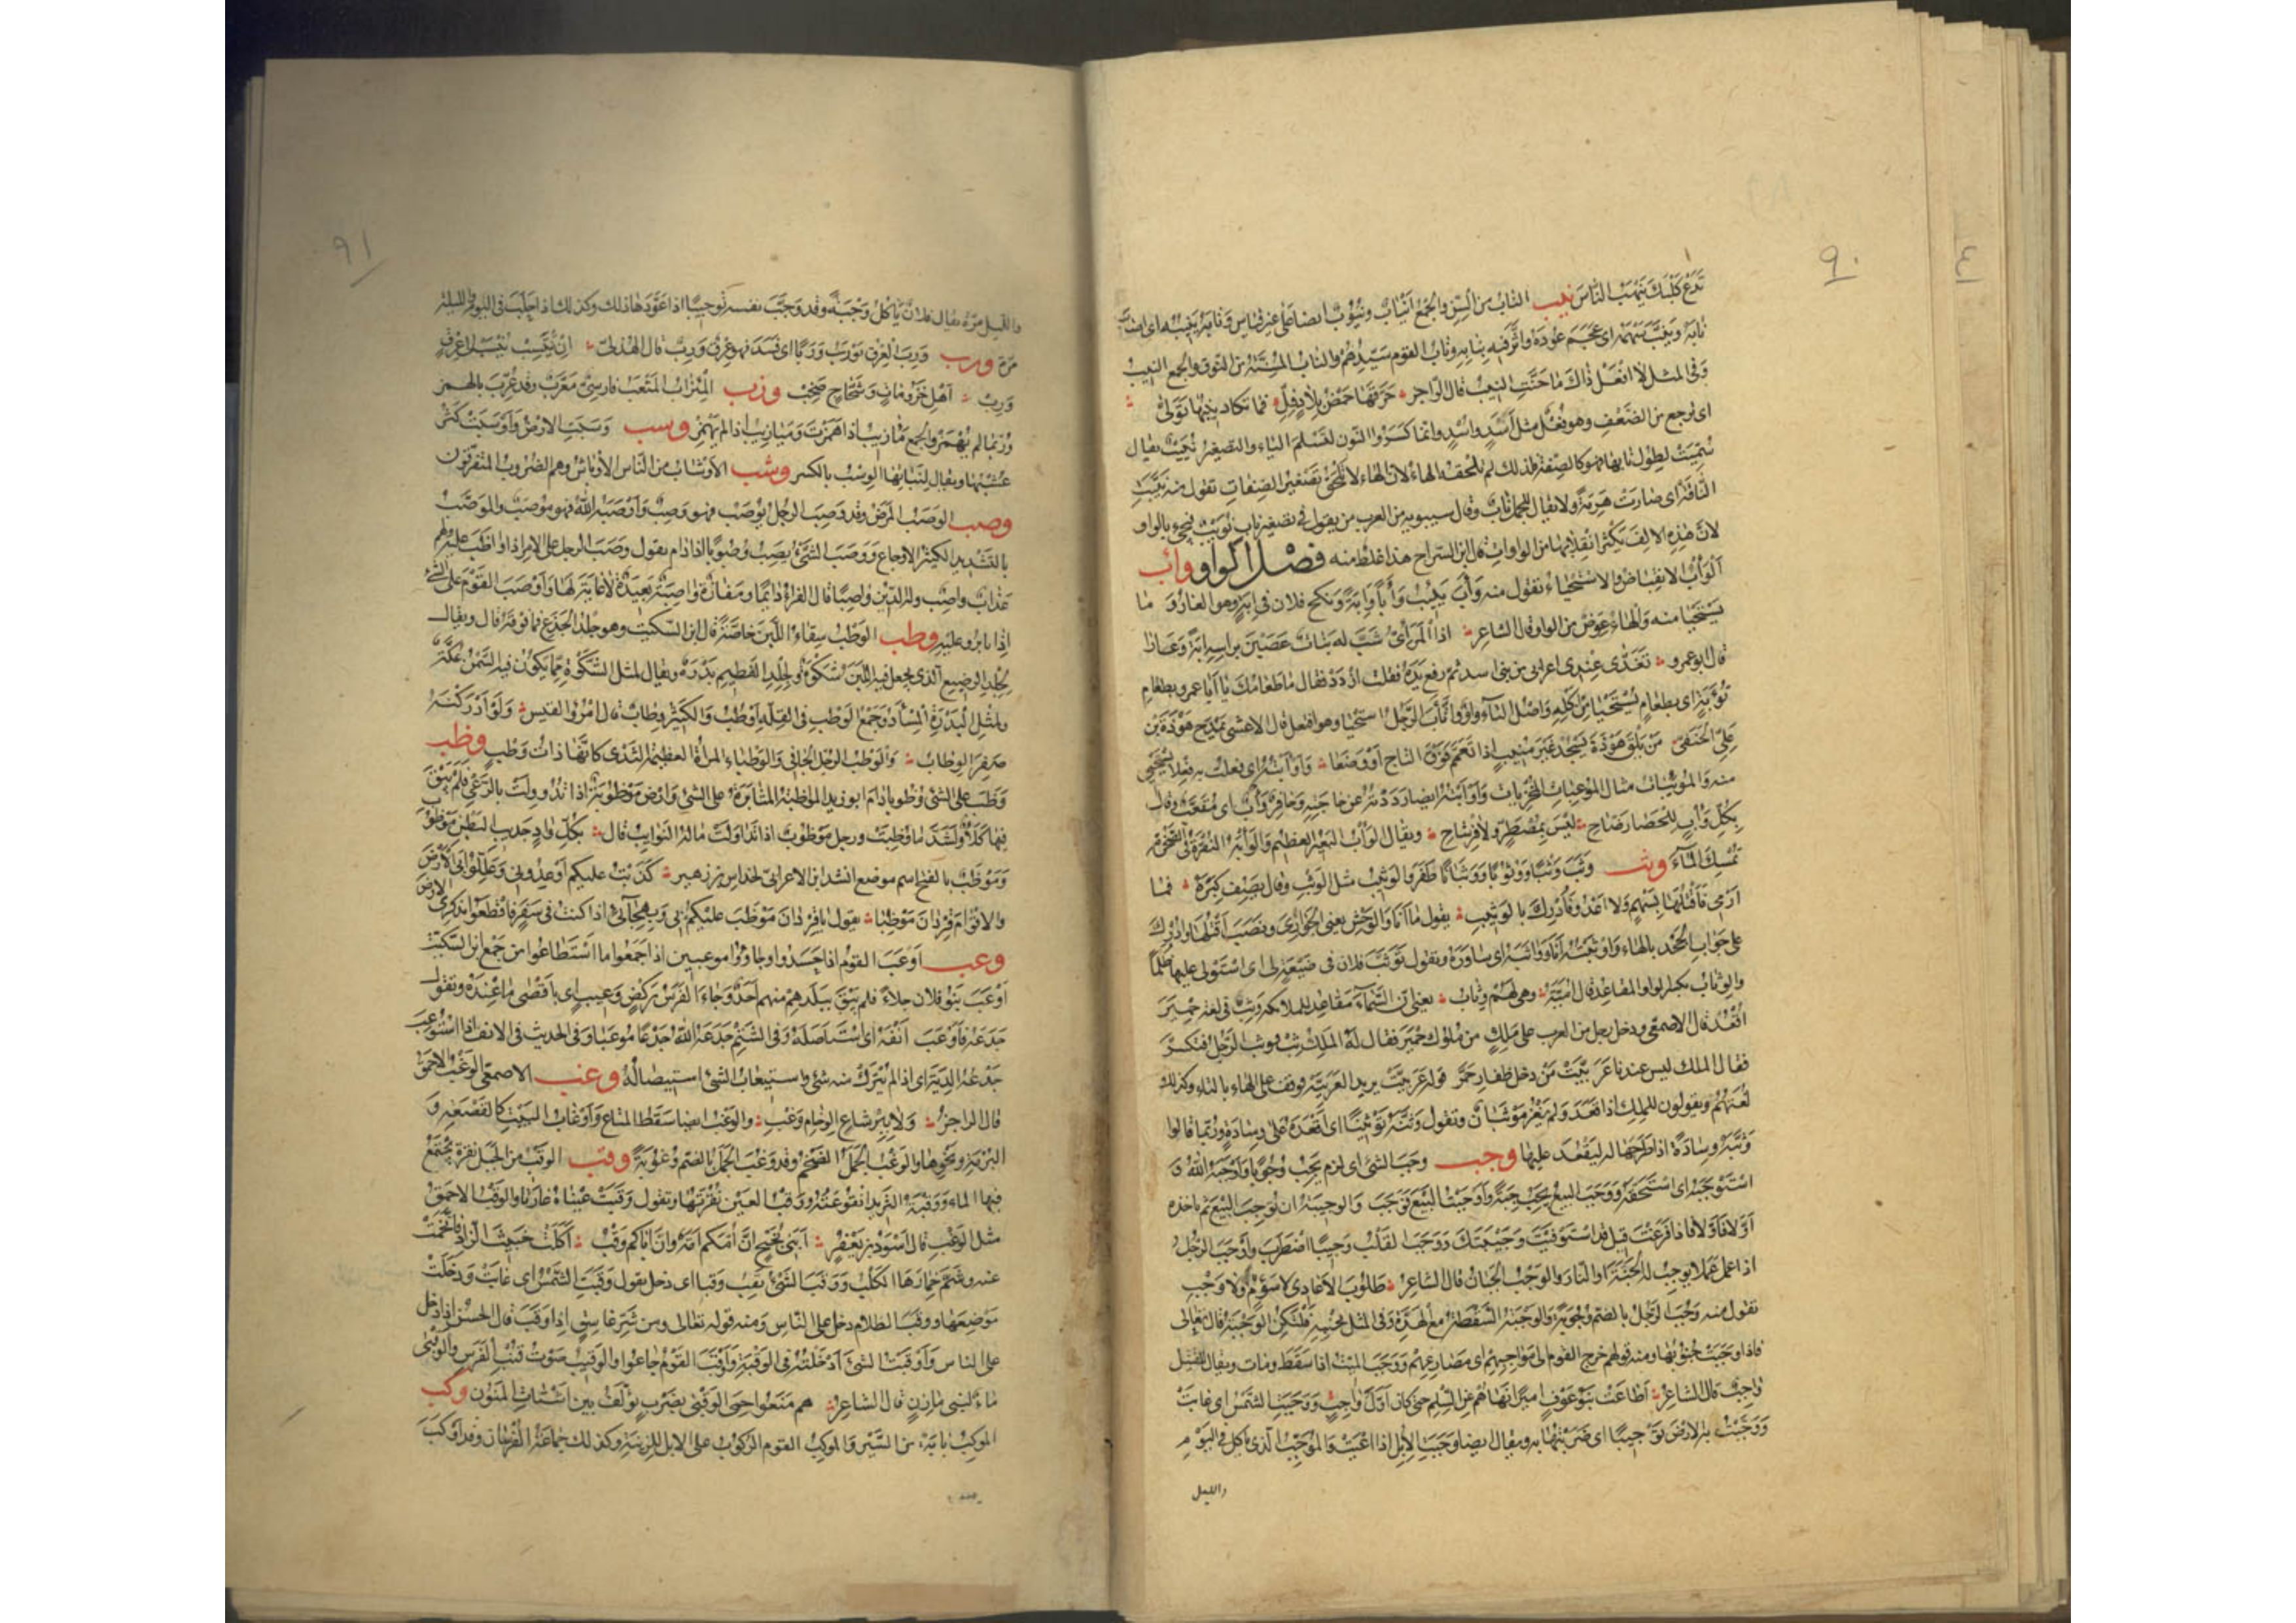 ٩٠
تَدَعْ كَلْبَكَ يَنْهَبُ النَّاسَ نيب النابُ مِنَ السِّنِّ والجمْعُ أَنْيَابٌ ونُيُوبٌ ايضا على غير قياس ونَابَهُ يَنِيبُهُ اى اصابَ
نَابَهُ ونَيَّبَ سَهْمَهُ اى عَجَمَ عُودَهُ وَأَثَّرَ فيه بِنَابِهِ ونابُ القوم سَيِّدُهُمْ والنابُ المُسِنَّةُ من النوق والجمع النِيبُ
وفى المثل لا أفْعَلُ ذَاكَ ما حَنَّتِ النِيبُ قال الراجز حَرَّقَهَا حَمْضُ بِلادٍ فِلِّ فما تكاد نِيبُهَا تَوَلِّى
اى ترجع من الضَّعْفِ وهو فُعْلٌ مثل أَسَدٍ وأُسْدٍ وانما كَسَرُوا النون لتَسْلَمَ الياء والتصغير نُيَيْبٌ يقال
سُمِّيَتْ لِطُولِ نَابِهَا فهو كالصِفَةِ فلذلك لم تلحقه الهاءُ لان الهاءَ لا تلحق تَصْغِيرَ الصِفَاتِ تقول منه نَيَّبَتِ
النَّاقَةُ اى صَارَتْ هَرِمَةً ولا يقال للجمل نَابٌ وقال سيبويه من العرب من يقول فى تصغير نابٍ نُوَيْبٌ فيجىء بالواو
لانّ هٰذِهِ الالِفَ يَكْثُرُ انْقِلَابُهَا من الواواتِ قال ابن السراج هذا غلط منه فَصْلُ الْوَاوِ وأب
اَلْوَأْبُ الانقباض والاستحياء تقول منه وَأَبَ يَئِبُ وَأْبًا وَاِبَةً ونكح فلان فى اِبَةٍ وهو العَارُ وَ ما
يُسْتَحْيَا منه والهاءُ عِوَضٌ من الواو قال الشاعر اذا المَرَئِىُّ شَبَّ له بَنَاتٌ عَصَبْنَ بِرَاسِهِ اِبَةً وَعَارَا
قال ابو عمرو تَغَدَّى عِنْدِى اعرابى من بنى اسد ثم رفع يَدَهُ فقلت ازْدَدْ فقال ما طَعَامُكَ يَا أَبَا عمرو بطعامِ
تُؤَبَةٍ اى بطعامٍ يُسْتَحْيَا مِنْ اَكْلِهِ واصْلُ التاء واوٌ وَاتَّأَبَ الرَّجُلُ استحيا وهو افتعل قال الاعشى يمدح هَوْذَةَ بن
عَلِىٍّ الحَنَفِىَّ مَنْ يَلْقَ هَوْذَةَ يَسْجُدْ غَيْرَ مُتَّئِبٍ اِذا تَعَمَّمَ فَوْقَ التاجِ اَوْ وَضَعَا وَاَوْأَبْتُهُ اى فعلت به فِعْلا يُسْتَحْيَى
منه والمُوئِبَاتُ مثال المُوْعِبَاتِ المُخْزِيَات وَاَوْأَبْتُهُ ايضا رَدَدْتُهُ عن حَاجَتِهِ وحَافِرٌ وَأْبٌ اى مُقَعَّبٌ وقال
بِكُلِّ وَأْبٍ لِلْحَصَا رَضَّاحِ لَيْسَ بِمُصْطَرٍّ ولا فِرْشَاحِ ويقال الوَأْبُ البَعِيرُ العظيم وَالوَأْبَةُ النُقْرَةُ فى الصَّخْرَةِ
تُمْسِكُ المَاءَ وثب وَثَبَ وَثْبًا وَوُثُوبًا وَوَثَبَانًا طَفَرَ والوَثِيبُ مثل الوَثْبِ وقال يَصِفُ كِبَرَهُ فما
اَرْمِى فَاَقْتُلَهَا بِسَهْمٍ ولا اَعْدُو فَاُدْرِكَ بالوَثِيبِ يقول ما اَنَا والوَحْشَ يعنى الجَوَارِىَ ونصب اَقْتُلَهَا واُدْرِكَ
على جواب الجَحْدِ بالفاء وَاَوْثَبْتُهُ اَنَا وَوَاثَبَهُ اى سَاوَرَهُ وتقول تَوَثَّبَ فلان فى ضَيْعَةٍ لى اى اسْتَوْلى عليها ظُلْمًا
والوِثَابُ بكسر الواو المَقَاعِدُ قال اُمَيَّةُ وهى لَهُمْ وِثَابُ يعنى انّ السَّمَاءَ مَقَاعِدُ للملائكة وثِبْ فى لغة حِمْيَرَ
اقْعُدْ قال الاصمعى ودخل رجل من العرب على مَلِكٍ من مُلُوكِ حِمْيَرَ فقال لَهُ المَلِكُ ثِبْ فوثب الرَّجُلُ فتكسَّرَ
فقال الملك ليس عندنا عَرَبِيَّتْ مَنْ دخل ظَفَارِ حَمَّرَ قوله عَرَبِيَّتْ يريد العَرَبِيَّة فوقف على الهاء بالتاء وكذلك
لُغَتُهُمْ ويقولون للمَلِكِ اذا قَعَدَ وَلم يَغْزُ مَوْثَبَانٌ وتقول وَثَّبَهُ تَوْثِيبًا اى اَقْعَدَهُ على وِسَادَةٍ ورُبَّما قالوا
وَثَّبَهُ وِسَادَةً اذا طَرَحَهَا له لِيَقْعُدَ عليها وجب وَجَبَ الشئ اى لزم يَجِبُ وُجُوبًا وَاَوْجَبَهُ اللهُ وَ
اسْتَوْجَبَهُ اى اسْتَحَقَّهُ وَوَجَبَ البيع يَجِبُ جِبَةً وَاَوْجَبْتُ البَيْعَ فَوَجَبَ والوَجِيبَةُ ان تُوجِبَ البَيْعَ ثم تأخذه
اَوَّلًا فَاَوَّلًا فاذا فَرَغْتَ قيل قد اسْتَوْفَيْتَ وَجِيبَتَكَ وَوَجَبَ القَلْبُ وَجِيبًا اضْطَرَبَ وَاَوْجَبَ الرَّجُلُ
اذا عمل عملا يوجِبُ لَهُ الجَنَّةَ اَوِ النَّارَ والوَجْبُ الجَبَانُ قال الشاعر طَلُوبُ الاَعَادِى لا سَؤُمٌ ولا وَجْبُ
تقول منه وَجُبَ الرَّجُلُ بالضم وُجُوبَةً والوَجْبَةُ السَّقْطَةُ مع الهَدَّةِ وفى المثل بِجَنْبِهِ فَلْتَكُنِ الوَجْبَةُ قال تعالى
فاذا وجَبَتْ جُنُوبُهَا ومنه قولهم خرج القوم الى مَوَاجِبِهِمْ اى مَصَارِعِهِمْ وَوَجَبَ المَيِّتُ اذا سَقَطَ ومات ويقال للقَتِيل
وَاجِبٌ قال الشاعر اَطَاعَتْ بَنُو عَوْفٍ اَمِيرًا نَهَاهُمُ عَنِ السِّلْمِ حتى كان اَوَّلَ وَاجِبِ وَوَجَبَتِ الشمس اى غابت
وَوَجَّبْتُ به الارْضَ تَوْجِيبًا اى ضَرَبْتُهَا به ويقال ايضا وَجَّبَتِ الاِبِلُ اذا اَعْيَتْ والمُوَجِّبُ الذى ياكل فى اليَوْمِ
والليل
٩١
والليل مرّة يقال فلانٌ يَأْكُلُ وَجْبَةً وقد وَجَّبَ نفسه توجيبًا اذا عَوَّدَهَا ذلك وكذلك اذا حلب فى اليوم والليلة
مَرّة ورب وَرِبَ العِرْقُ يَوْرَبُ وَرَبًا اى فَسَدَ فهو عِرْقٌ وَرِبٌ قال الهذلىّ اِنْ يَنْتَسِبْ يُنْسَبْ اِلى عِرْقٍ
وَرِبْ اَهْلِ خَزُومَاتٍ وَشَحَّاجٍ صَخِبْ وزب المِيْزَابُ المَثْعَبُ فارسىٌّ مُعَرَّبٌ وقد عُرِّبَ بالهمز
ورُبَّما لم يُهْمَزْ والجمع مَآزِيبُ اذا هَمَزْتَ ومَيَازِيبُ اذا لم تَهْمِزْ وسب وَسَبَتِ الارْضُ وَاَوْسَبَتْ كَثُرَ
عُشْبُهَا ويقال لِنَبَاتِهَا الوِسْبُ بالكسر وشب الاَوْشَابُ من الناس الاَوْبَاشُ وهم الضُرُوبُ المتفرّقون
وصب الوَصَبُ المَرَضُ وقد وَصِبَ الرجلُ يَوْصَبُ فهو وَصِبٌ وَاَوْصَبَهُ اللهُ فهو مُوصَبٌ والمُوَصَّبُ
بالتَّشْدِيد الكثير الاَوجاع وَوَصَبَ الشَّئُ يَصِبُ وُصُوبًا اذا دام يقول وَصَبَ الرجل على الامر اذا وَاظَبَ عليه ولَهُمْ
عَذَابٌ واصِبٌ وله الدِّينُ وَاصِبًا قال الفراء دَائِمًا ومَفَازَةٌ وَاصِبَةٌ بَعِيدَةٌ لا غَايَةَ لَهَا وَاَوْصَبَ القَوْمُ على الشئ
اِذَا ثابروا عليه وطب الوَطْبُ سِقَاءُ اللَّبَنِ خَاصَّةً قال ابن السّكيت وهو جِلْدُ الجَذَعِ فما فوقه قال ويقال
لِجِلْدِ الرضيع الذى يُجعل فيه اللَّبَنُ شَكْوَةٌ ولِجِلْدِ الفَطِيمِ بَدْرَةٌ ويقال لمثل الشَكْوَةِ مما يكون فيه السَّمْنُ عُكَّةٌ
ولمثل البَدْرَةِ المِسْأَدُ وجَمْعُ الوَطْبِ فى القِلَّةِ اَوْطُبٌ والكَثِيرُ وِطَابٌ قال امْرُؤُ القيس وَلَوْ اَدْرَكْنَهُ
صَفِرَ الوِطَابُ والوَطْبُ الرَّجُلُ الجَافِى وَالوَطْبَاءُ المرأة العظيمة الثَدْىِ كَاَنَّهَا ذَاتُ وَطْبٍ وظب
وَظَبَ على الشئ وُظُوبًا دَامَ ابو زيد المُوَاظَبَةُ المثابَرَةُ على الشئ وارض مَوْظُوبَةٌ اذا تُدُوولَتْ بالرَّعْىِ فلم يَبْقَ
فيها كَلَأٌ ولَشَدَّ ما وُظِبَتْ ورجل مَوْظُوبٌ اذا تَدَاوَلَتْ مَالَهُ النوائب قال بِكُلِّ وَادٍ جَدِيبِ البَطْنِ مَوْظُوبِ
وَمَوْظَبٌ بالفتح اسم موضع انشد ابن الاعرابى لخداش بن زهير كَذَبْتُ عليكم اَوْعِدُونِى وَعَلِّلُوا بِىَ الاَرْضَ
والاَقْوَامَ قِرْدَانَ مَوْظَبَا يقول يا قِرْدَانَ مَوْظَبَ عليكم بى وبهِجَآئى اذا كنت فى سَفَرٍ فاقطعوا بذكرى الارض
وعب اَوْعَبَ القومُ اذا حَشَدُوا وجاؤُوا موعبين اذا جمعوا ما اسْتَطَاعُوا من جَمْعٍ ابن السّكيت
اَوْعَبَ بَنُو فلان جلاءً فلم يَبْقَ ببلدهم منهم احَدٌ وجَاءَ الفَرَسُ بِرَكْضٍ وَعِيبٍ اى باَقْصَى ما عِنْدَهُ وتقول
جَدَعَهُ فَاَوْعَبَ اَنْفَهُ اى اسْتَأْصَلَهُ وفى الشَّتْمِ جَدَعَهُ اللهُ جَدْعًا مُوعبا وفى الحديث فى الانف اذا اسْتُوعِبَ
جَدْعُهُ الدِّيَةُ اى اذا لم يُتْرَكْ منه شئ واستيعابُ الشئ استِيصَالُهُ وغب الاصمعى الوَغْبُ الاَحْمَقُ
قال الراجز وَلا بِبِرْشَاعِ الوِخَامِ وَغْبِ والوَغْبُ ايضا سَقَطُ المتاع وَاَوْغَابُ البَيْتِ كالقَصْعَةِ وَ
البُرْمَةِ ونحوِها والوَغْبُ الجَمَلُ الضخم وقد وَغُبَ الجَمَلُ بالضم وُغُوبَةً وقب الوَقْبُ من الجَبَلِ نُقْرَةٌ يجتمع
فيها الماء وَوَقْبَةُ الثريد انْقُوعَتُهُ وَوَقْبُ العين نُقْرَتُهَا وتقول وَقَبَتْ عَيْنَاهُ غَارَتَا والوَقْبُ الاحمق
مثل الوَغْبِ قال اَسْوَدُ بن يَعْفُرَ اَبَنِى نُجَيْحٍ اِنَّ اُمَّكُمُ اَمَةٌ وَاِنَّ اَبَاكُمُ وَقْبُ اَكَلَتْ خَبِيثَ الزَّادِ فَاتَّخَمَتْ
عنه وشَمَّ خِمَارَهَا الكَلْبُ وَوَقَبَ الشَئُ يَقِبُ وقبا اى دخل يقول وَقَبَتِ الشَّمْسُ اى غابَتْ وَدخَلَتْ
مَوْضِعَهَا وَوَقَبَ الظلام دخل على النَّاسِ ومنه قوله تعالى ومن شَرِّ غَاسِقٍ اِذَا وَقَبَ قال الحسن اذا دخل
على الناس وَاَوْقَبْتُ الشئَ اَدْخَلْتُهُ فى الوَقْبَةِ وَاَوْقَبَ القَوْمُ جَاعُوا والوَقِيبُ صَوْتُ قُنْبِ الفَرَسِ والوَقْبَى
مَاءٌ لبنى مَازِنٍ قال الشاعر هم مَنَعُوا حِمَى الوَقْبَى بِضَرْبٍ يُؤَلِّفُ بين اَشْتَاتِ المَنُونِ وكب
الموكِبُ بَابَةٌ من السَّيْرِ والموكِبُ القوم الرُكُوبُ على الابل للزِينَةِ وكذلك جَمَاعَةُ الفُرْسَانِ وقد اَوْكَبَ